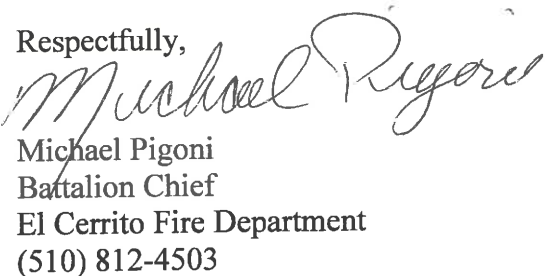 Respectfully,
Michael Pigoni
Michael Pigoni
Battalion Chief
El Cerrito Fire Department
(510) 812-4503